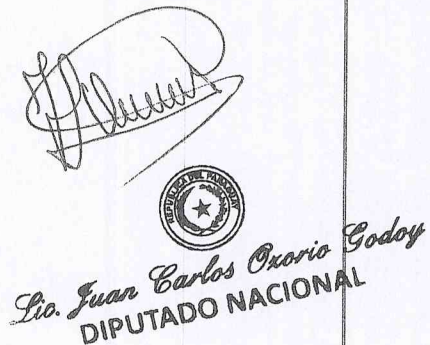 REPUBLICA DEL PARAGUAY
Lic. Juan Carlos Ozorio Godoy
DIPUTADO NACIONAL